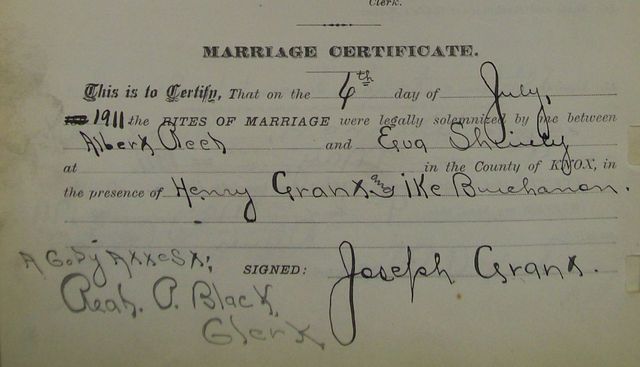 Clerk.
MARRIAGE CERTIFICATE.
This is to Certify, That on the 4th day of July,
1911 the RITES OF MARRIAGE were legally solemnized by me between
Albert and Eva Shively
at in the County of KNOX, in
the presence of Henry Grant and Ike Buchanon.
A Copy Attest;
SIGNED: Joseph Grant.
P. Black,
Clerk